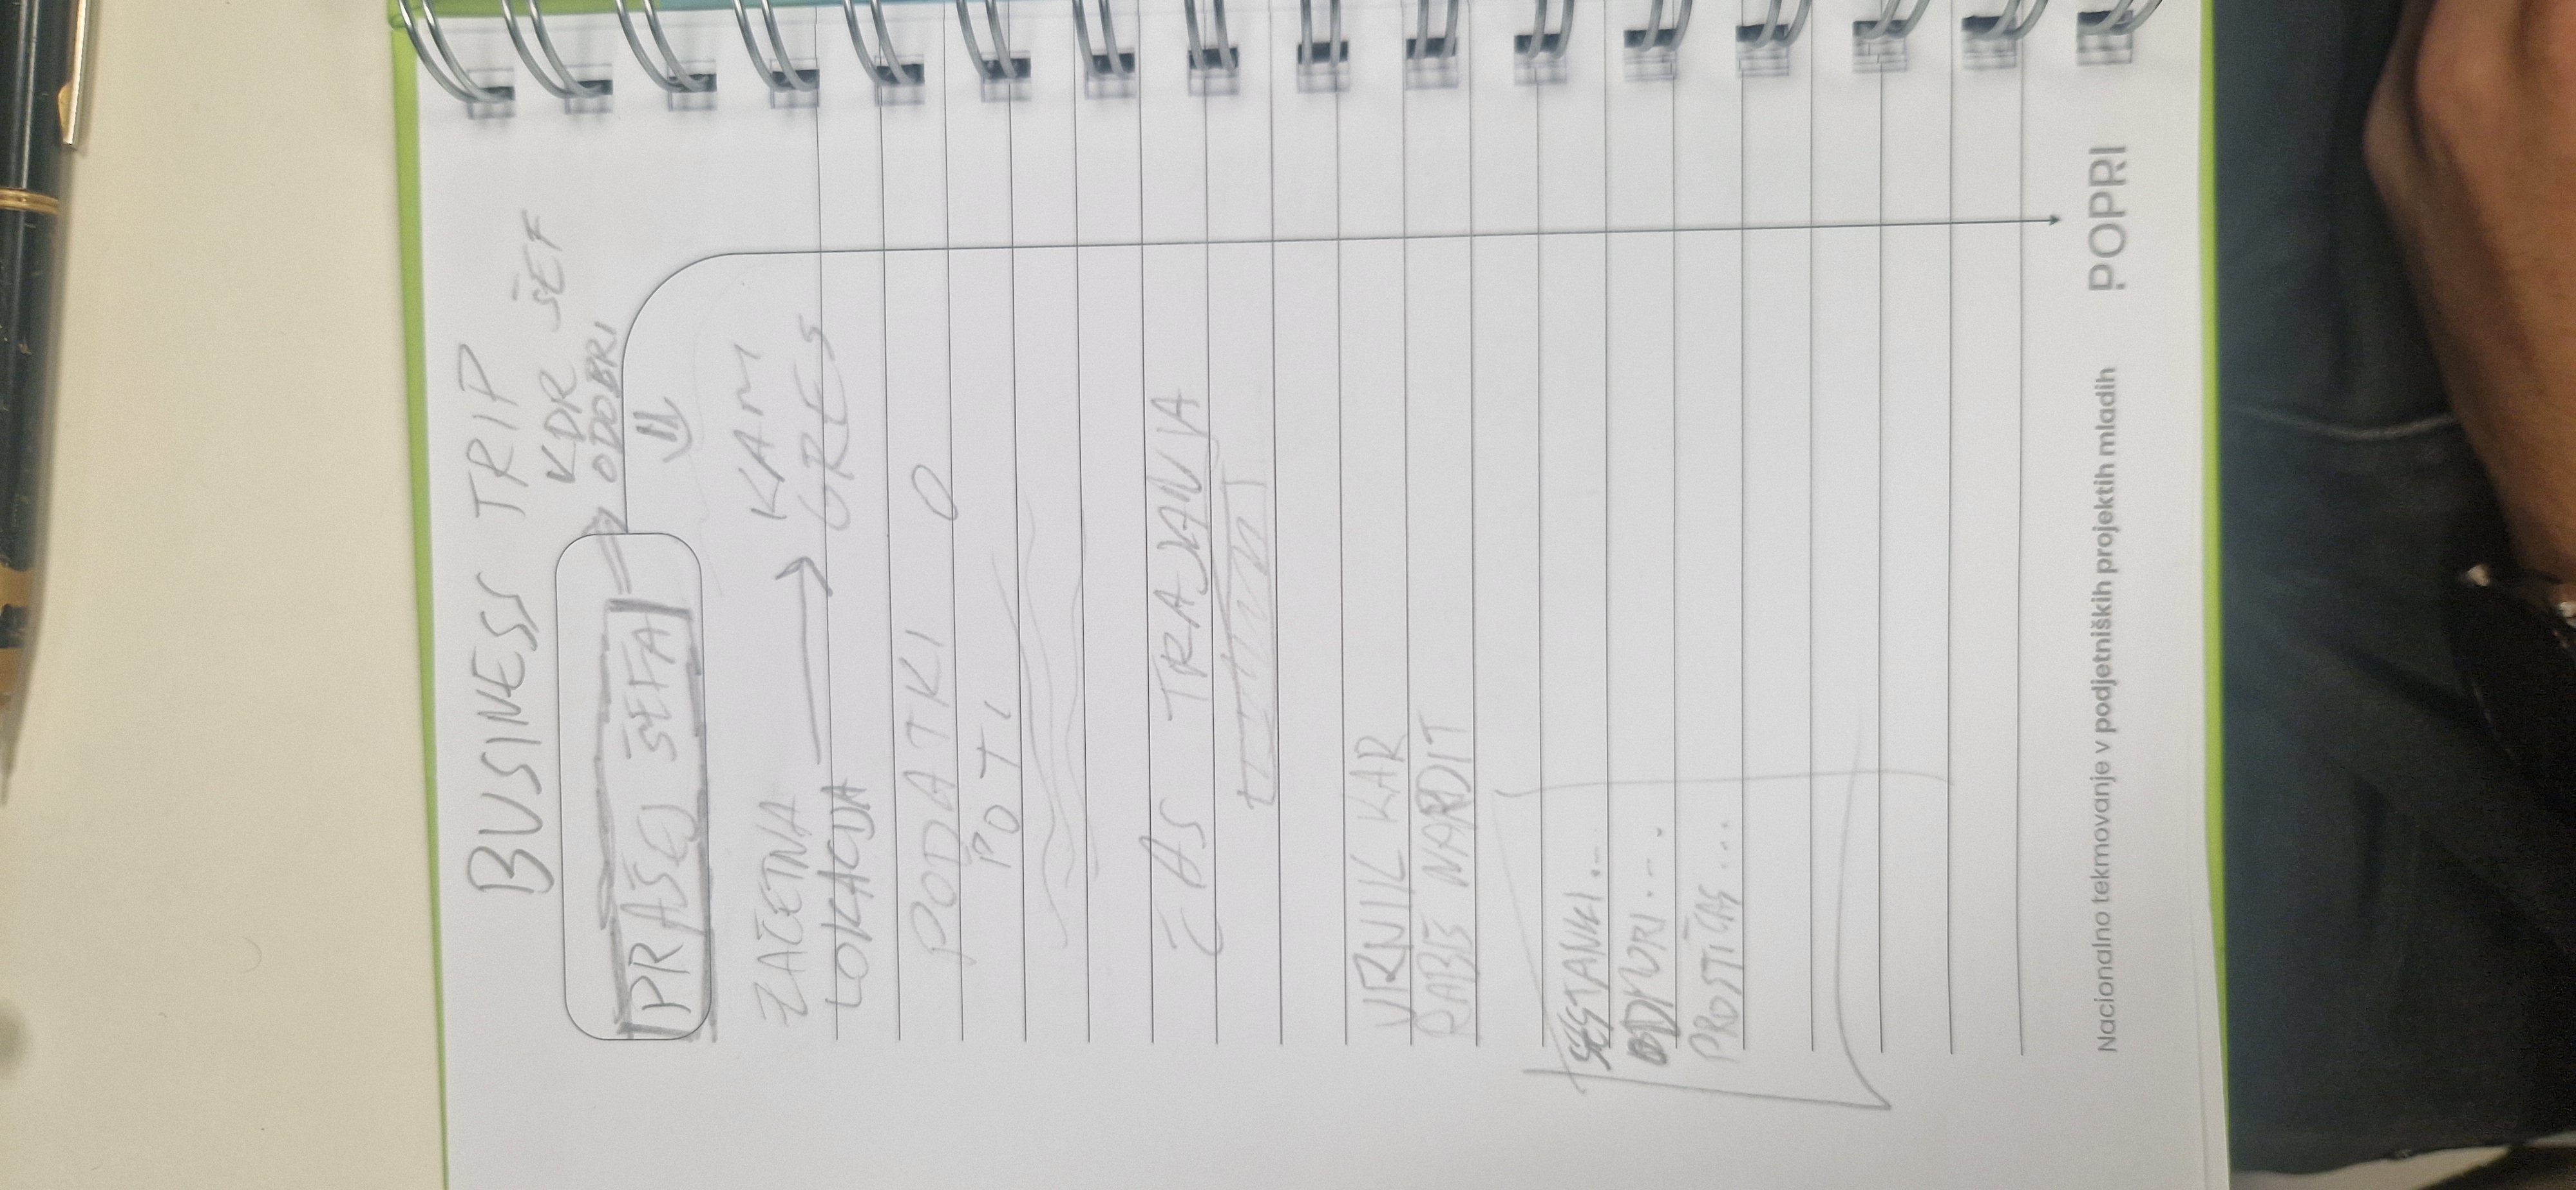 BUSINESS TRIP
KDR ŠEF
ODOBRI
PRAŠEJ ŠEFA
ZAČETNA
LOKACIJA
KAM
GREŠ
PODATKI O
POTI
ČAS TRAJANJA
KAR
RABIŠ NARDIT
SESTANKI...
ODMORI....
PROSTI ČAS...
Nacionalno tekmovanje v podjetniških projektih mladih
POPRI